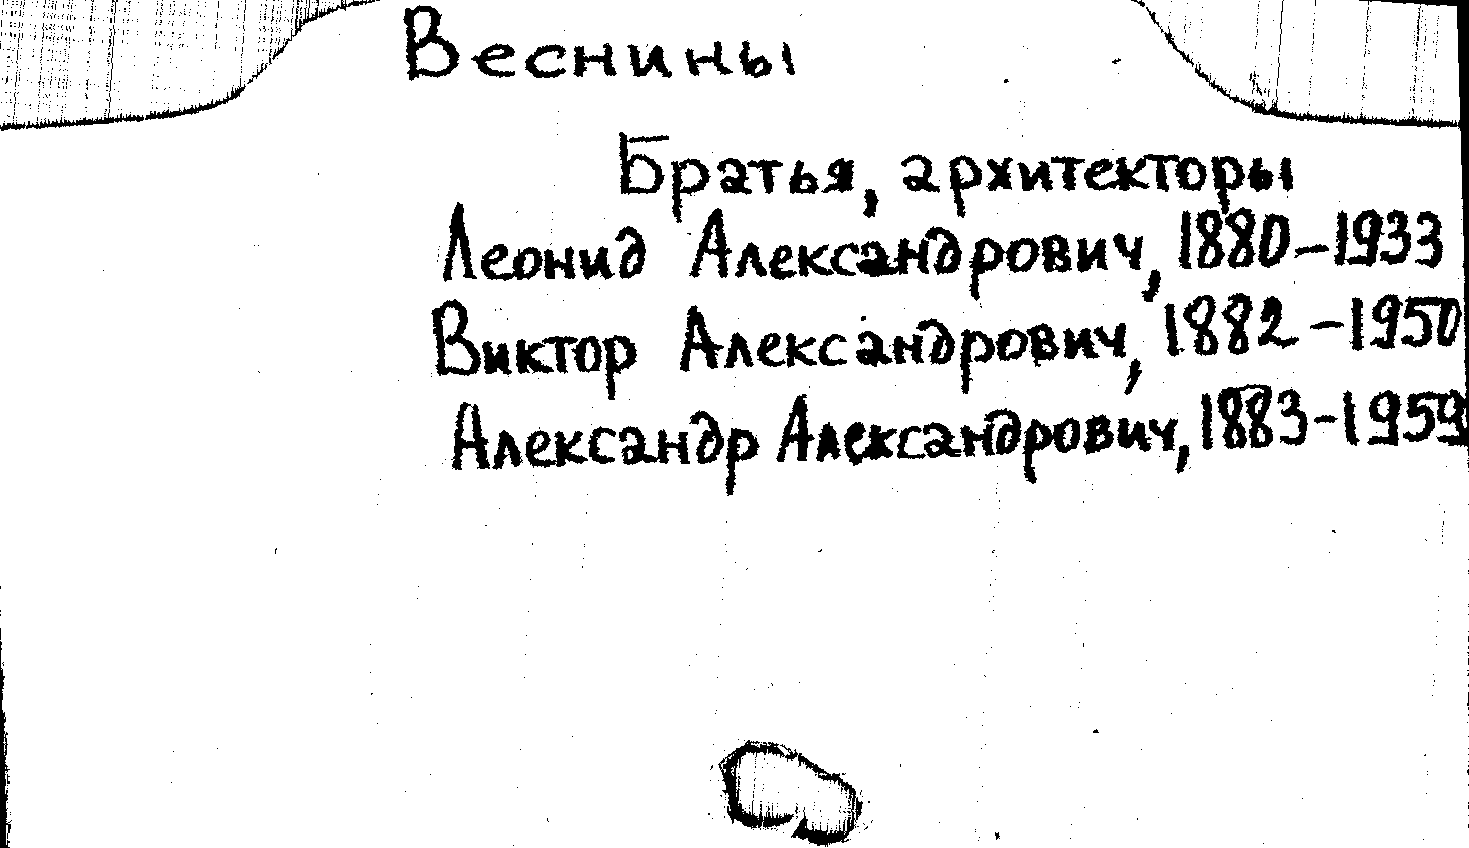 Веснины
Братья, архитекторы
Леонид Александрович, 1880-1933
Виктор Александрович, 1882-1950
Александр Александрович, 1883-1959